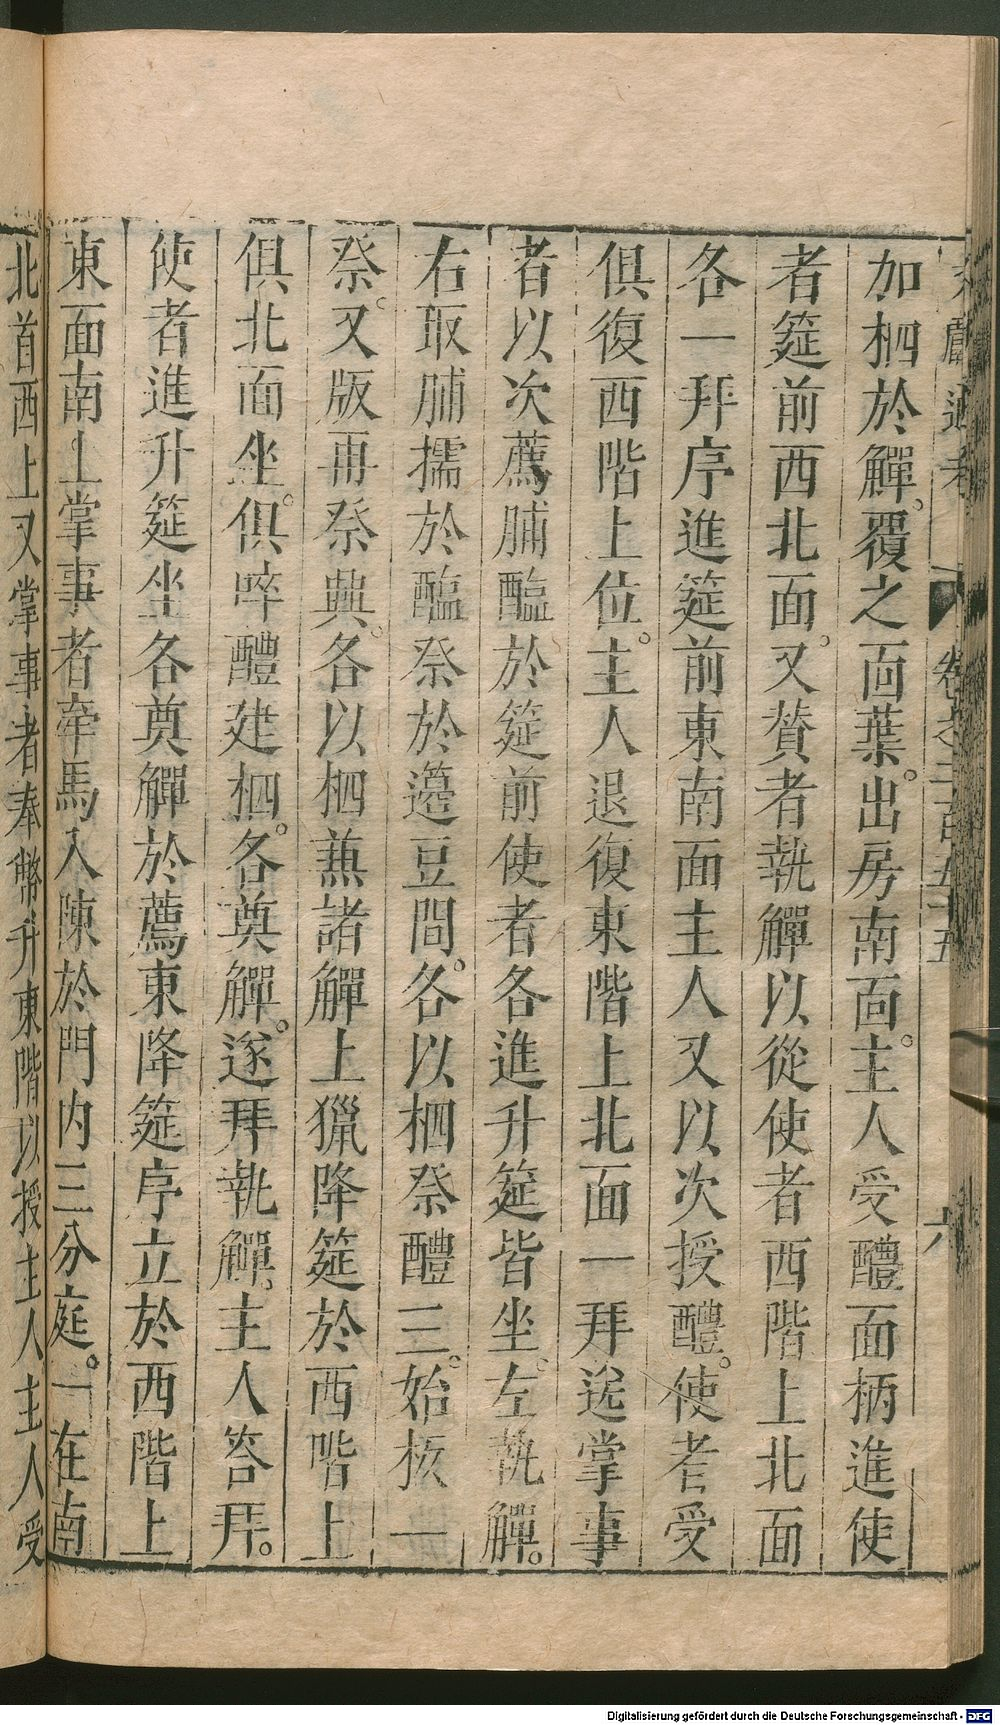 文獻通考 卷之二百五十五 六
加柶於觶。覆之面葉。出房南面。主人受醴面柄進使
者筵前西北面。又賛者執觶以從使者西階上北面
各一拜序進筵前東南面主人又以次授醴。使者受
俱復西階上位。主人退復東階上北面一拜送掌事
者以次薦脯醢於筵前使者各進升筵皆坐。左執觶。
右取脯擩於醢祭於籩豆間。各以柶祭醴三。始扱一
祭。又版再祭興。各以柶兼諸觶上獵降筵於西階上
俱北面坐。俱啐醴建柶。各奠觶。遂拜執觶。主人答拜。
使者進升筵坐各奠觶於薦東降筵序立於西階上
東面南上掌事者牽馬入陳於門内三分庭。一在南
北首西上又掌事者奉幣升東階以授主人主人受
Digitalisierung gefördert durch die Deutsche Forschungsgemeinschaft - DFG